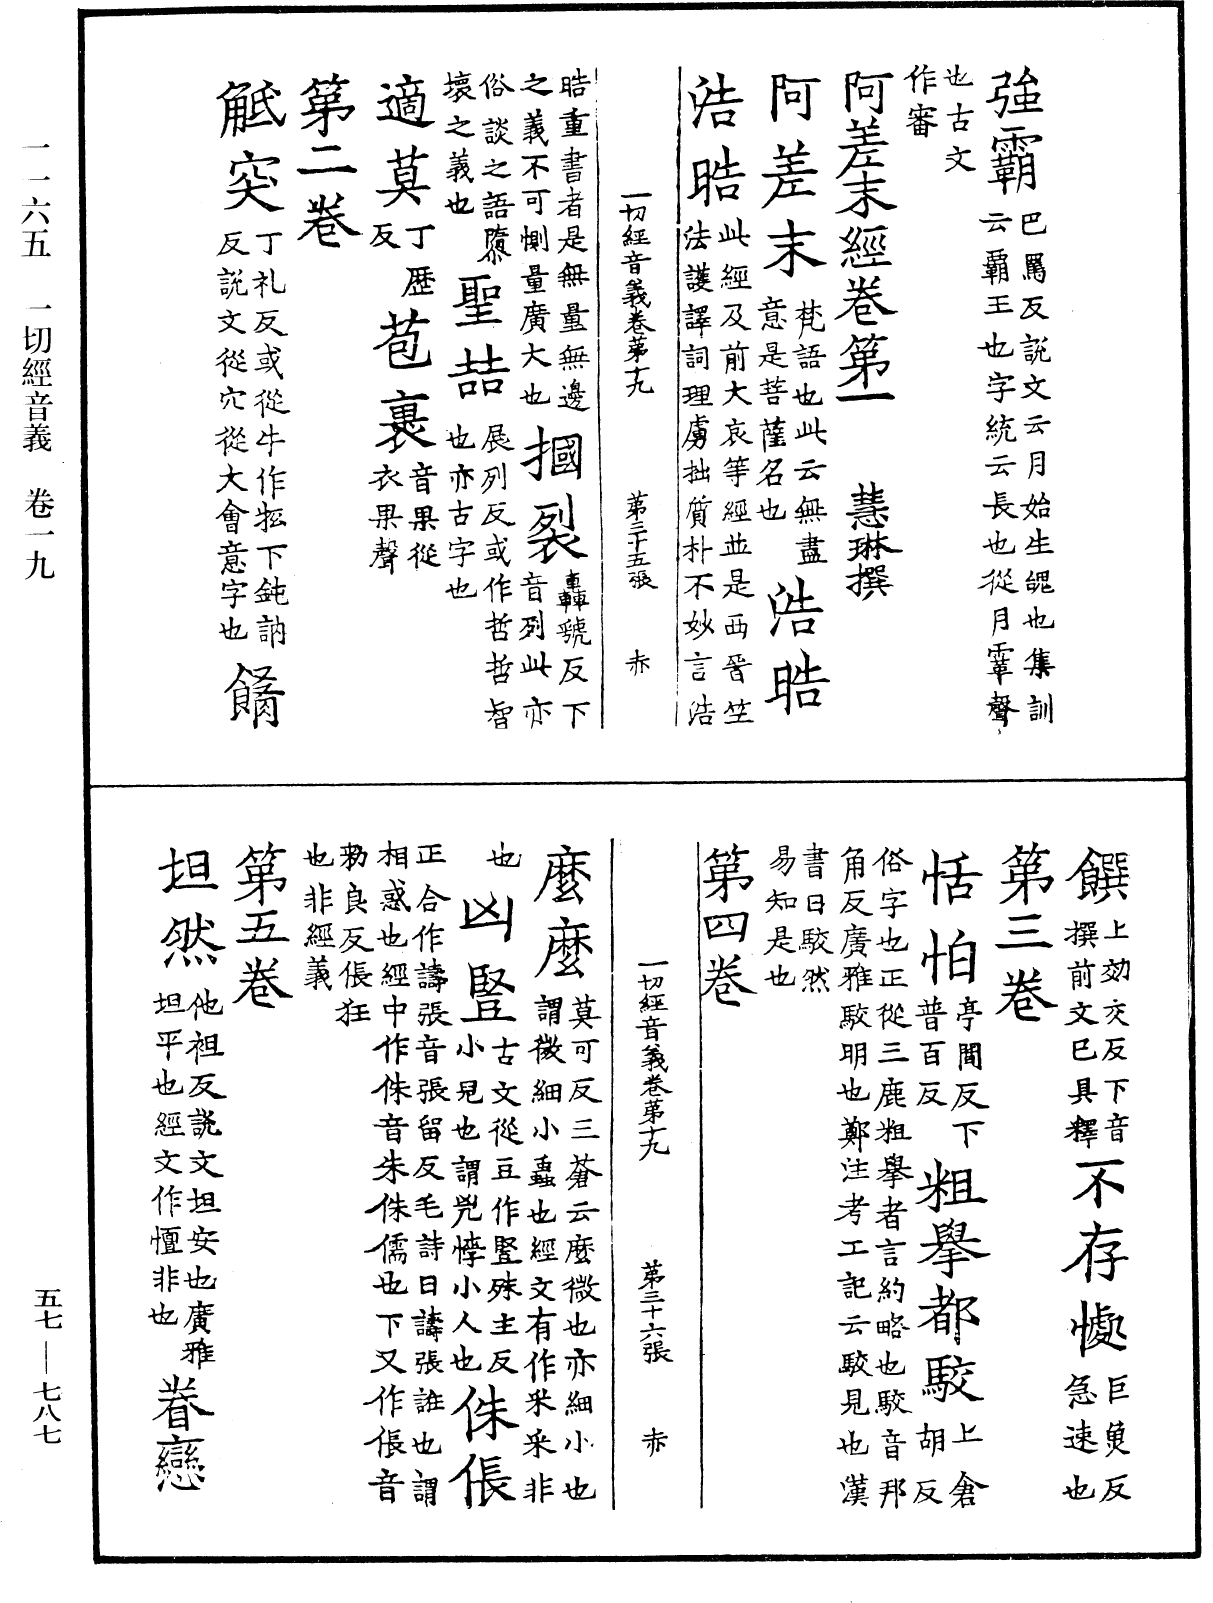 強霸 巴罵反說文云月始生魄也集訓
云霸王也字統云長也從月䨣聲
也古文
作審
阿差末經卷第一 慧琳撰
阿差末 梵語也此云無盡
意是菩薩名也 浩晧
浩晧 此經及前大哀等經並是西晉竺
法護譯詞理虜拙質朴不妙言浩
一切經音義卷第十九 第三十五張 赤
晧重書者是無量無邊
之義不可惻量廣大也 摑裂 轟虢反下
音列此亦
俗談之語隳
壞之義也 聖喆 展列反或作哲哲智
也亦古字也
適莫 丁歷
反 苞裹 音果從
衣果聲
第二卷
觝突 丁礼反或從牛作牴下鈍訥
反說文從穴從犬會意字也 餚
饌 上効交反下音
撰前文已具釋 不存懅 巨魚反
急速也
第三卷
恬怕 亭閻反下
普百反 粗舉都駮 上倉
胡反
俗字也正從三鹿粗舉者言約略也駮音邦
角反廣雅駮明也鄭注考工記云駮見也漢
書曰駮然
易知是也
第四卷
一切經音義卷第十九 第三十六張 赤
麼麼 莫可反三蒼云麼微也亦細小也
謂微細小蟲也經文有作釆釆非
也 凶豎 古文從豆作豎殊主反
小皃也謂兇悖小人也 侏倀
正合作譸張音張留反毛詩曰譸張誰也謂
相惑也經中作侏音朱侏儒也下又作倀音
勑良反倀狂
也非經義
第五卷
坦然 他袒反說文坦安也廣雅
坦平也經文作憻非也 眷戀
一一六五 一切經音義 卷一九
五七—七八七